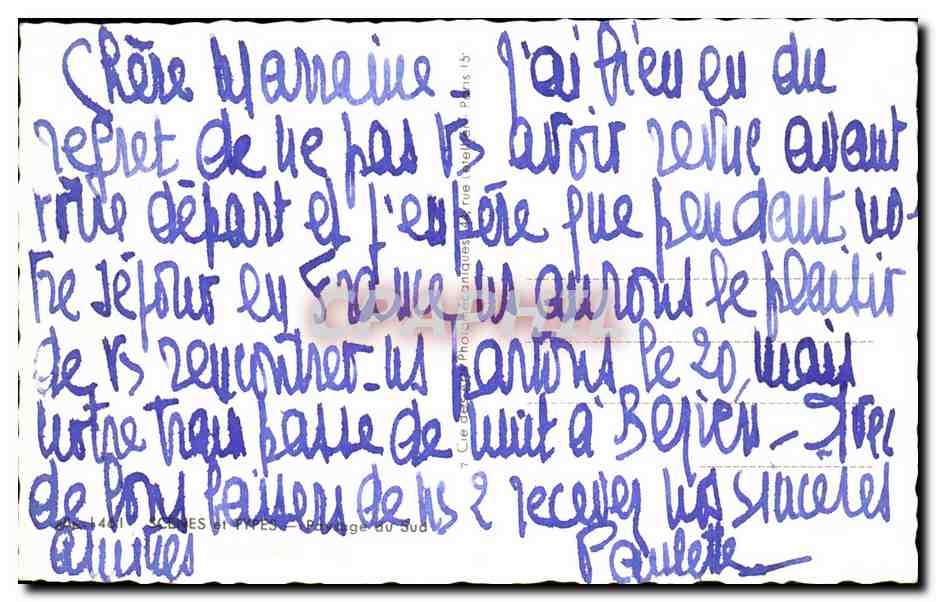 Chère Marraine. J'ai bien eu du
regret de ne pas vs avoir revue avant
vôtre départ et j'espère que pendant no-
tre séjour en France ns aurons le plaisir
de vs rencontrer - ns partons le 20, mais
notre train passe de nuit à Beziers - Avec
de bons baisers de ns 2 recevez nos sincères
amities Paulette
1461 SCENES et TYPES — Paysage du Sud
Cie des Arts Photomécaniques, rue Letellier - Paris 15
CPAPHIL